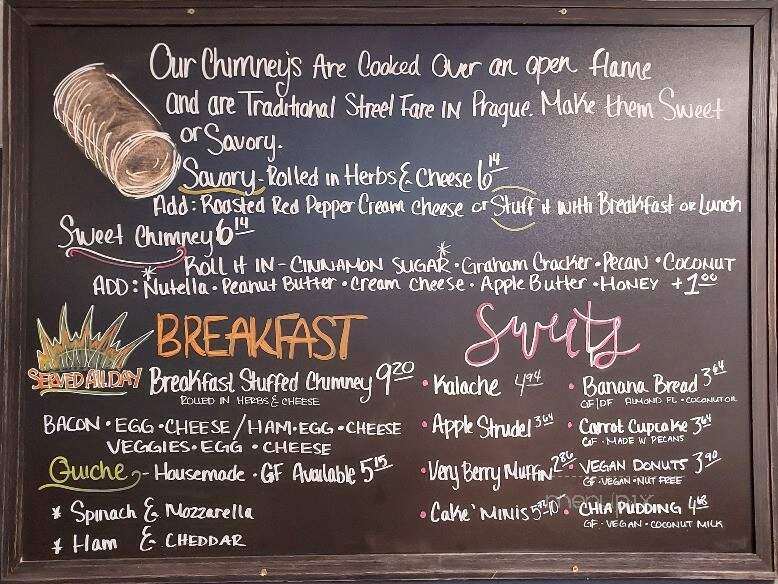 Our Chimneys Are Cooked Over an open flame
and are Traditional Street Fare in Prague. Make them Sweet
or Savory.
Savory - Rolled in Herbs & Cheese 6 14
Add: Roasted Red Pepper Cream cheese or Stuff it with Breakfast or Lunch
Sweet Chimney 6 14
* Roll it in - Cinnamon Sugar * · Graham Cracker · Pecan · Coconut
ADD: Nutella · Peanut Butter · Cream Cheese · Apple Butter · Honey + 1 00
BREAKFAST
SERVED All DAY
Breakfast Stuffed Chimney 9 20
Rolled in Herbs & Cheese
BACON · EGG · CHEESE / HAM · EGG · CHEESE
VEGGIES · EGG · CHEESE
Quiche - Housemade · GF Available 5 15
* Spinach & Mozzarella
* Ham & CHEDDAR
Sweets
· Kalache 4 94
· Apple Strudel 3 64
· Very Berry Muffin 2 86
· Cake' Minis
· Banana Bread 3 64
GF/DF ALMOND FL · COCONUT OIL
· Carrot Cupcake 3 64
GF · MADE W PECANS
· VEGAN DONUTS 3 90
GF · VEGAN · NUT FREE
· CHIA PUDDING 4 68
GF · VEGAN · COCONUT MILK
menupix